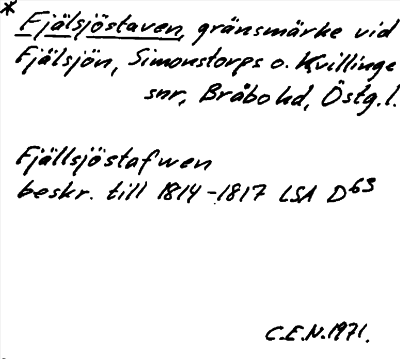 * Fjälsjöstaven, gränsmärke vid
Fjälsjön, Simonstorps o. Kvillinge
snr, Bråbo hd, Östg.l.
Fjällsjöstafwen
beskr. till 1814-1817 LSA D63
C.E.N.1971.